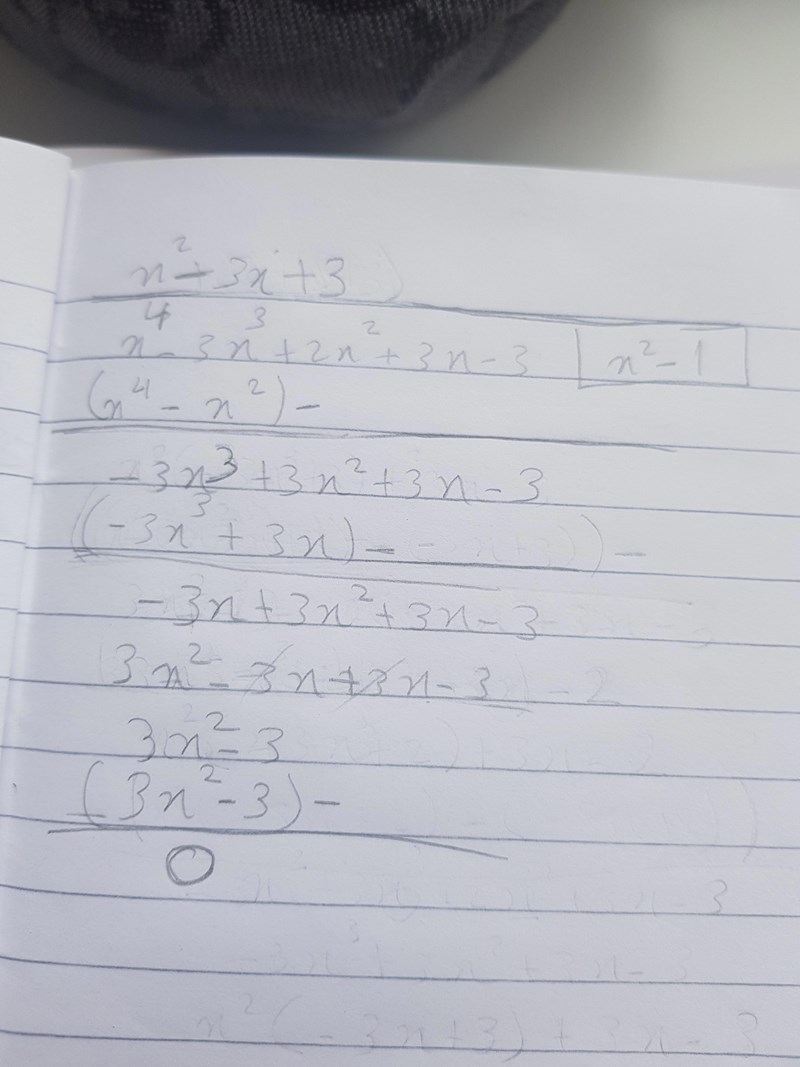 x² - 3x + 3
x⁴ - 3x³ + 2x² + 3x - 3 | x² - 1
(x⁴ - x²) -
-3x³ + 3x² + 3x - 3
(-3x³ + 3x) -
-3x + 3x² + 3x - 3
3x² - 3x + 3x - 3
3x² - 3
(3x² - 3) -
0
x² (-3x + 3) + 3x - 3